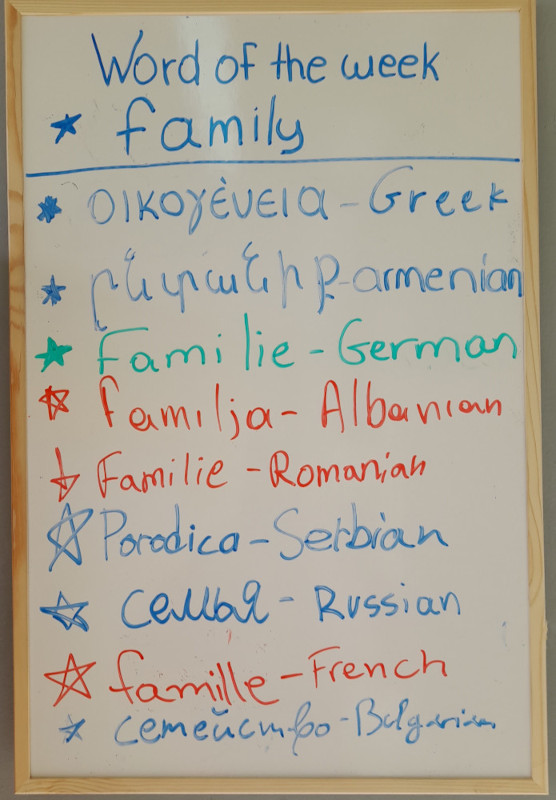 Word of the week
family
οικογένεια - Greek
ընտանիք - armenian
Familie - German
familja - Albanian
Familie - Romanian
Porodica - Serbian
семья - Russian
famille - French
семейство - Bulgarian